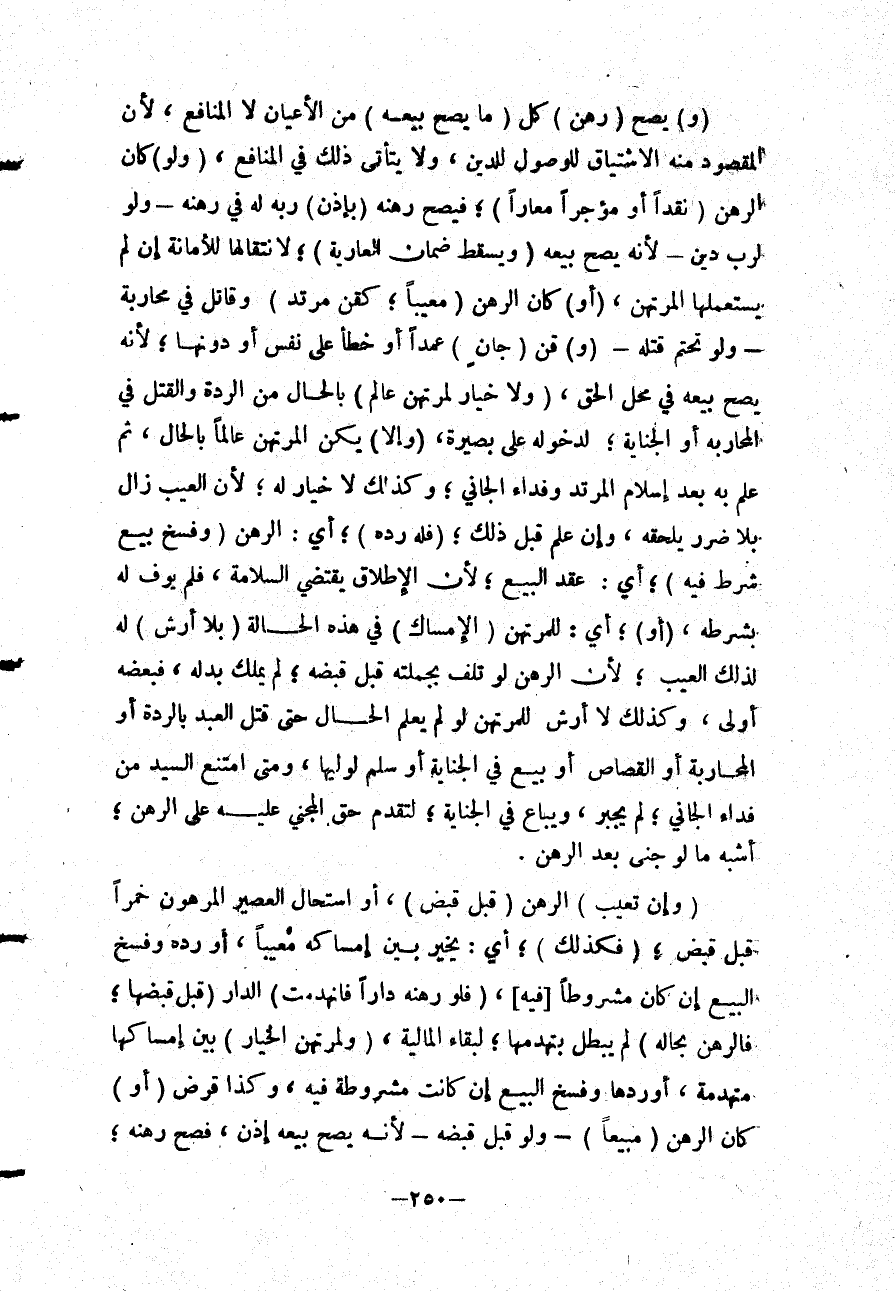 (و) يصح ( رهن ) كل ( ما يصح بيعه ) من الأعيان لا المنافع ، لأن
المقصود منه الاشتياق للوصول للدين ، ولا يتأتى ذلك في المنافع ، ( ولو) كان
الرهن ( نقداً أو مؤجراً معاراً ) ؛ فيصح رهنه (بإذن) ربه له في رهنه – ولو
لرب دين – لأنه يصح بيعه ( ويسقط ضمان العارية ) ؛ لانتقالها للأمانة إن لم
يستعملها المرتهن ، (أو) كان الرهن ( معيباً ؛ كقن مرتد ) وقاتل في محاربة
– ولو تحتم قتله – (و) قن ( جانٍ ) عمداً أو خطأ على نفس أو دونها ؛ لأنه
يصح بيعه في محل الحق ، ( ولا خيار لمرتهن عالم ) بالحال من الردة والقتل في
المحاربه أو الجناية ؛ لدخوله على بصيرة، (وإلا) يكن المرتهن عالماً بالحال ، ثم
علم به بعد إسلام المرتد وفداء الجاني ؛ وكذلك لا خيار له ؛ لأن العيب زال
بلا ضرر يلحقه ، وإن علم قبل ذلك ؛ (فله رده ) ؛ أي : الرهن ( وفسخ بيع
شرط فيه ) ؛ أي : عقد البيع ؛ لأن الإطلاق يقتضي السلامة ، فلم يوف له
بشرطه ، (أو) ؛ أي : للمرتهن ( الإمساك ) في هذه الحالة ( بلا أرش ) له
لذلك العيب ؛ لأن الرهن لو تلف بجملته قبل قبضه ؛ لم يملك بدله ، فبعضه
أولى ، وكذلك لا أرش للمرتهن لو لم يعلم الحال حتى قتل العبد بالردة أو
المحاربة أو القصاص أو بيع في الجناية أو سلم لوليها ، ومتى امتنع السيد من
فداء الجاني ؛ لم يجبر ، ويباع في الجناية ؛ لتقدم حق المجني عليه على الرهن ؛
أشبه ما لو جنى بعد الرهن .
( وإن تعيب ) الرهن ( قبل قبض ) ، أو استحال العصير المرهون خمراً
قبل قبض ؛ ( فكذلك ) ؛ أي : يخير بين إمساكه مُعيباً ، أو رده وفسخ
البيع إن كان مشروطاً [فيه] ، ( فلو رهنه داراً فانهدمت ) الدار (قبل قبضها ؛
فالرهن بحاله ) لم يبطل بتهدمها ؛ لبقاء المالية ، ( ولمرتهن الخيار ) بين إمساكها
متهدمة ، أوردها وفسخ البيع إن كانت مشروطة فيه ، وكذا قرض ( أو )
كان الرهن ( مبيعاً ) – ولو قبل قبضه – لأنه يصح بيعه إذن ، فصح رهنه ؛
–٢٥٠–